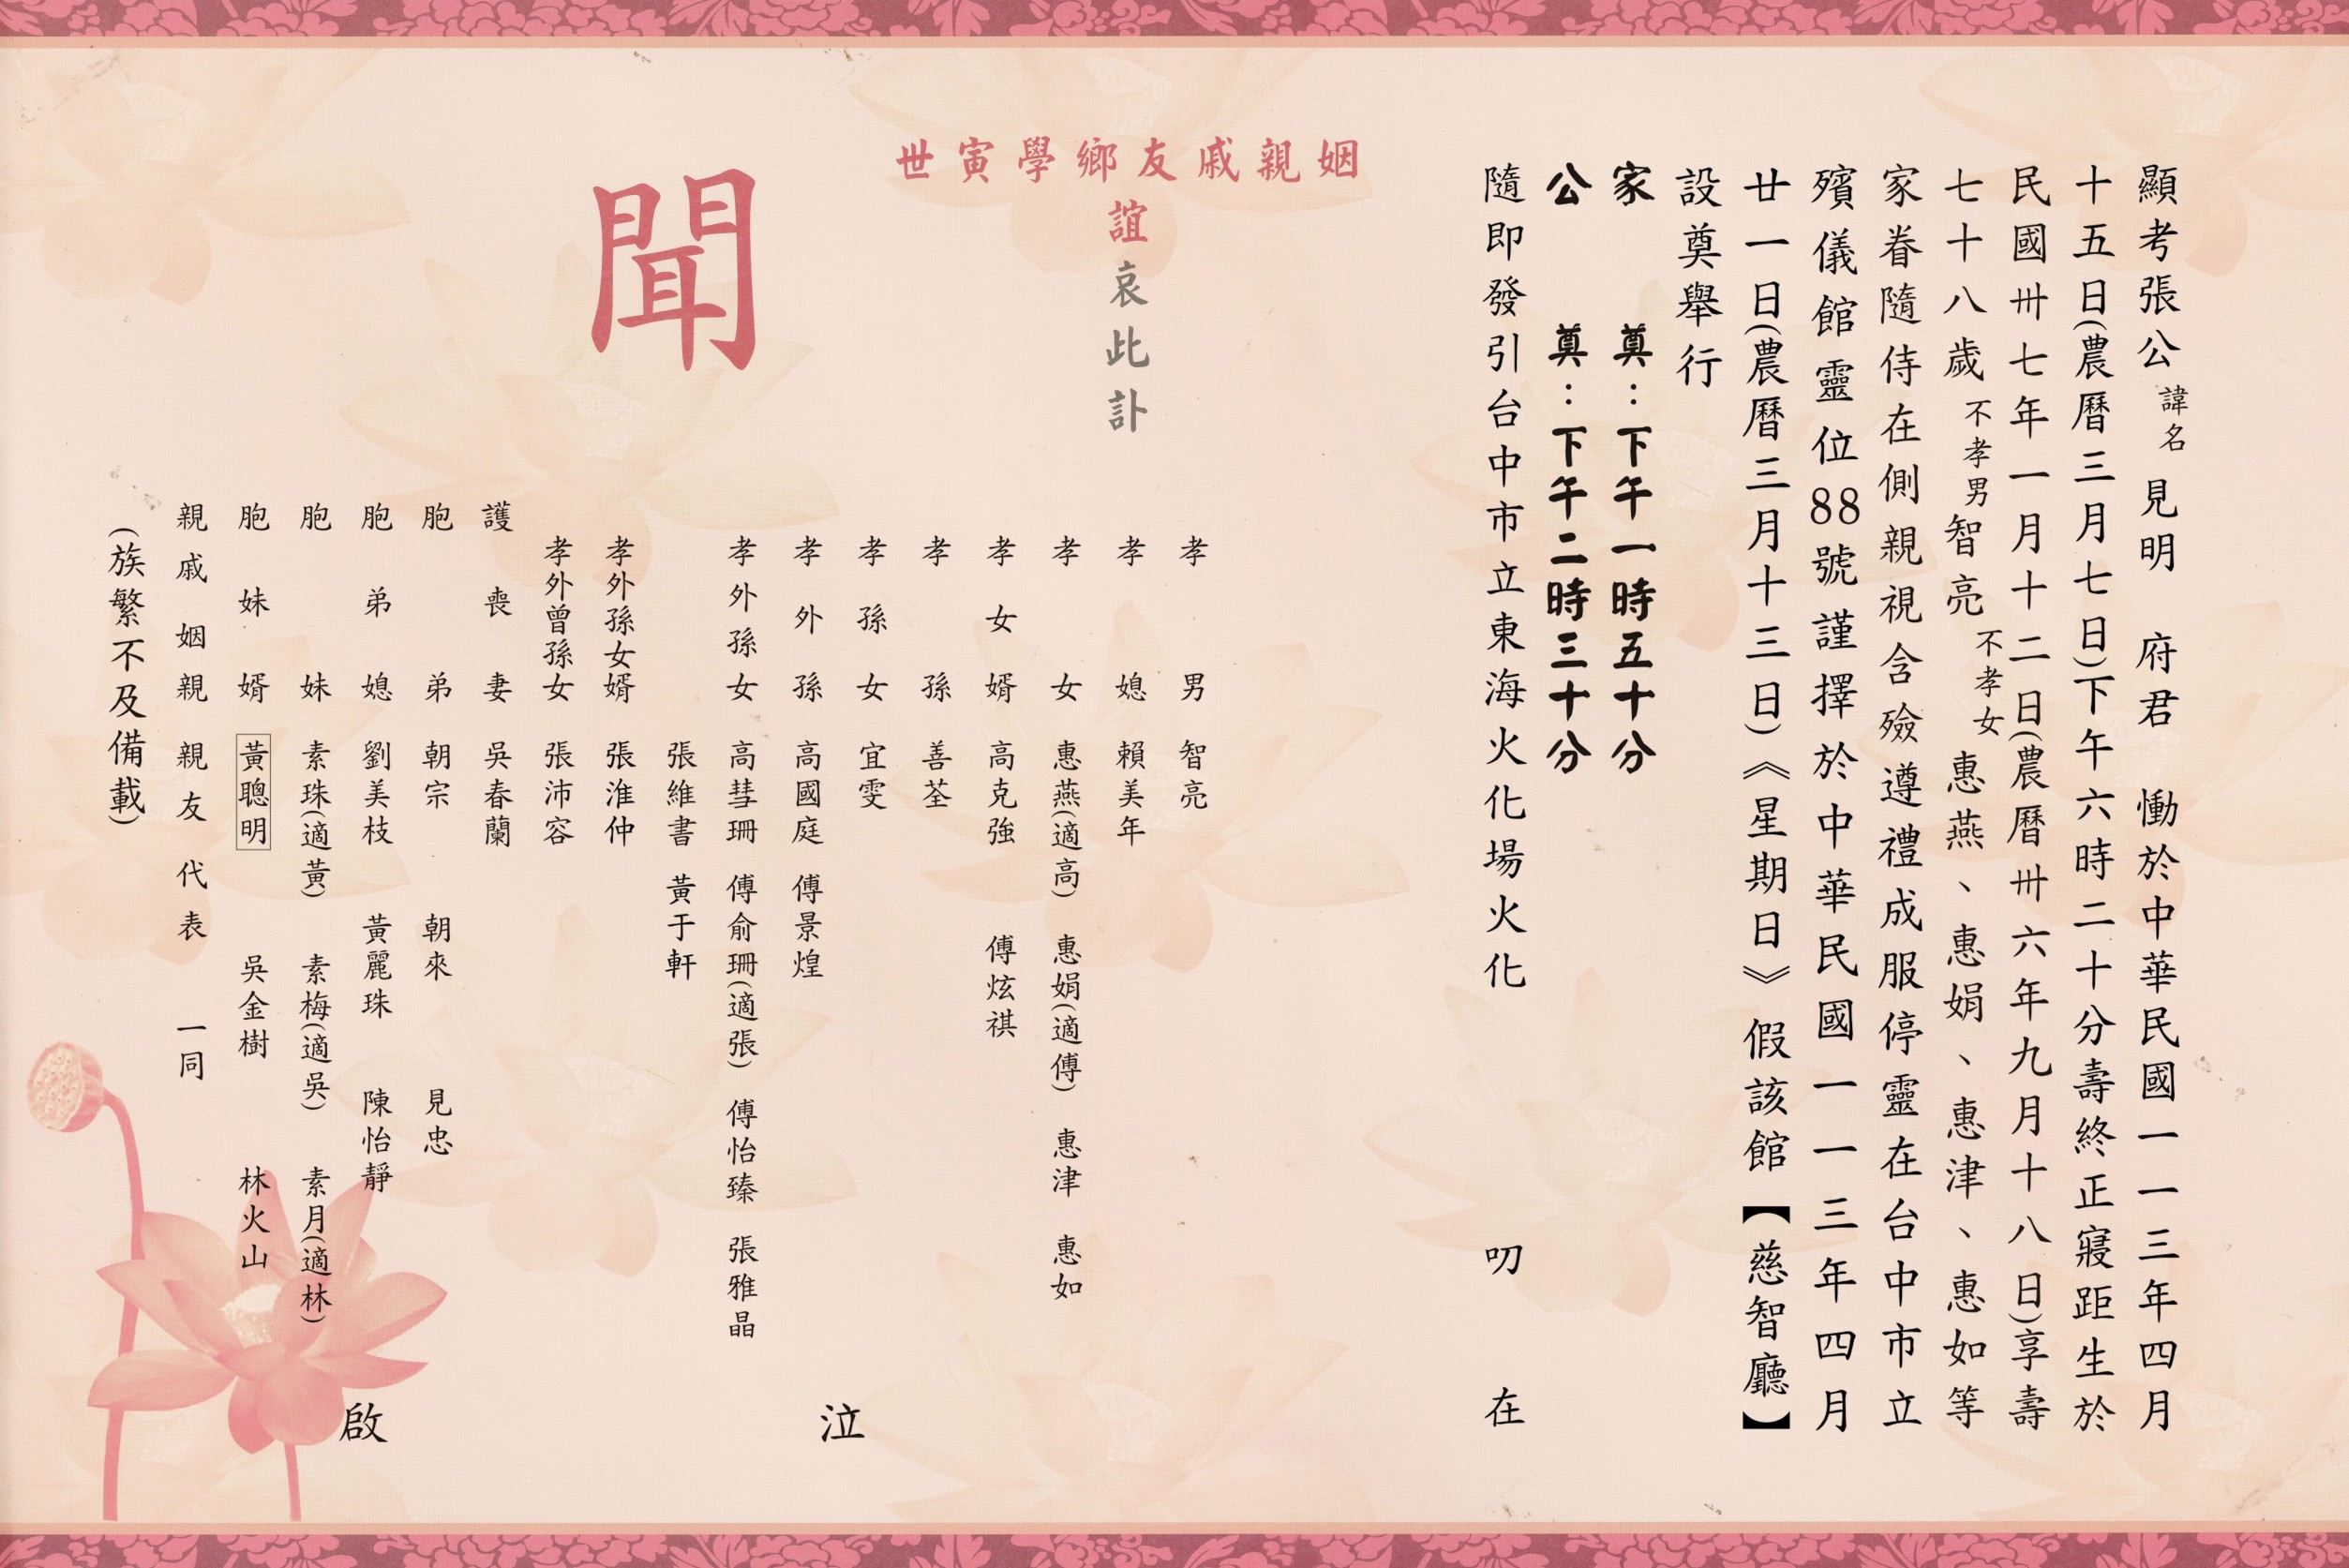 顯考張公諱名見明 府君 慟於中華民國一一三年四月
十五日(農曆三月七日)下午六時二十分壽終正寢距生於
民國卅七年一月十二日(農曆卅六年九月十八日)享壽
七十八歲不孝男智亮不孝女惠燕、惠娟、惠津、惠如等
家眷隨侍在側親視含殮遵禮成服停靈在台中市立
殯儀館靈位88號謹擇於中華民國一一三年四月
廿一日(農曆三月十三日)《星期日》假該館【慈智廳】
設奠舉行
家 奠:下午一時五十分
公 奠:下午二時三十分
隨即發引台中市立東海火化場火化 叨 在
姻親戚友鄉學寅世
誼哀此訃
聞
孝男 智亮
孝媳 賴美年
孝女 惠燕(適高) 惠娟(適傅) 惠津 惠如
孝女婿 高克強 傅炫祺
孝孫 善荃
孝孫女 宜雯
孝外孫 高國庭 傅景煌
孝外孫女 高彗珊 傅俞珊(適張) 傅怡臻 張雅晶
張維書 黃于軒
孝外孫女婿 張淮仲
孝外曾孫女 張沛容
護喪妻 吳春蘭
胞弟 朝宗 朝來 見忠
胞弟媳 劉美枝 黃麗珠 陳怡靜
胞妹 素珠(適黃) 素梅(適吳) 素月(適林)
胞妹婿 黃聰明 吳金樹 林火山
親戚姻親 親友代表 一同
(族繁不及備載)
泣 啟